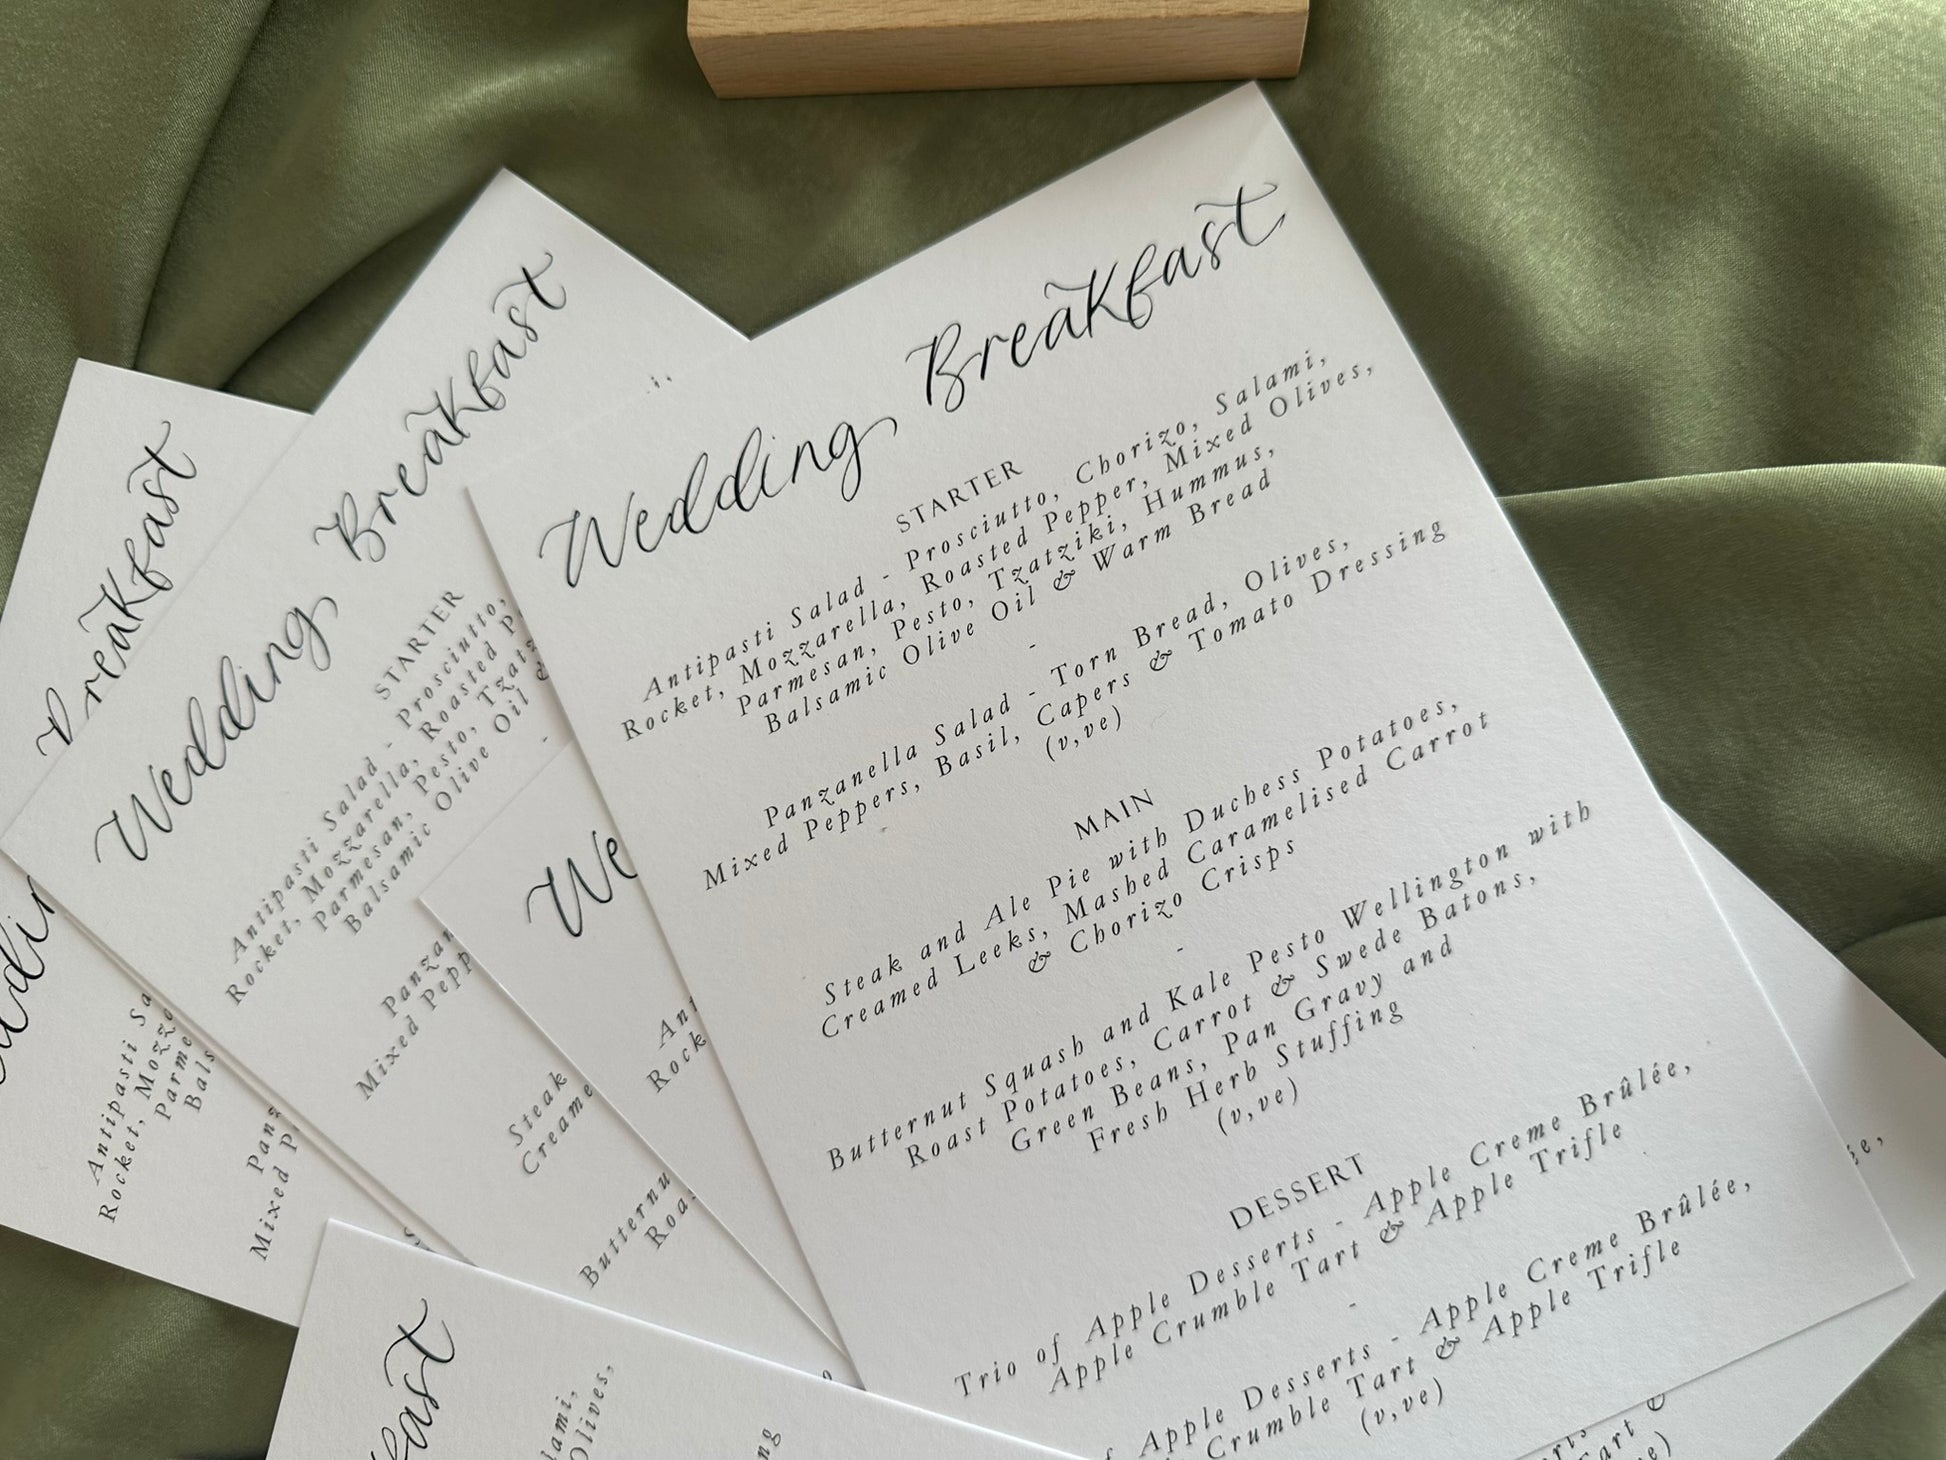 Wedding Breakfast
STARTER
Antipasti Salad - Prosciutto, Chorizo, Salami,
Rocket, Mozzarella, Roasted Pepper, Mixed Olives,
Parmesan, Pesto, Tzatziki, Hummus,
Balsamic Olive Oil & Warm Bread
-
Panzanella Salad - Torn Bread, Olives,
Mixed Peppers, Basil, Capers & Tomato Dressing
(v,ve)
MAIN
Steak and Ale Pie with Duchess Potatoes,
Creamed Leeks, Mashed Caramelised Carrot
& Chorizo Crisps
-
Butternut Squash and Kale Pesto Wellington with
Roast Potatoes, Carrot & Swede Batons,
Green Beans, Pan Gravy and
Fresh Herb Stuffing
(v,ve)
DESSERT
Trio of Apple Desserts - Apple Creme Brûlée,
Apple Crumble Tart & Apple Trifle
-
Apple Desserts - Apple Creme Brûlée,
Crumble Tart & Apple Trifle
(v,ve)
Wedding Breakfast
STARTER
Antipasti Salad - Prosciutto,
Rocket, Mozzarella, Roasted
Parmesan, Pesto,
Balsamic Olive Oil &
-
Mixed
Steak
Breakfast
Antipasti
Rocket,
Mixed